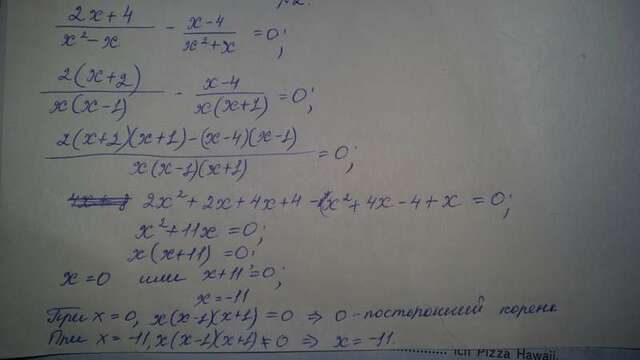 2x+4 / x²-x - x-4 / x²+x = 0;
2(x+2) / x(x-1) - x-4 / x(x+1) = 0;
2(x+2)(x+1)-(x-4)(x-1) / x(x-1)(x+1) = 0;
2x²+2x+4x+4-x²+4x-4+x = 0;
x²+11x = 0;
x(x+11) = 0;
x=0 или x+11=0;
x=-11
При x=0, x(x-1)(x+1)=0 ⇒ 0-посторонний корень
При x=-11, x(x-1)(x+1)≠0 ⇒ x=-11.
ich Pizza Hawaii.